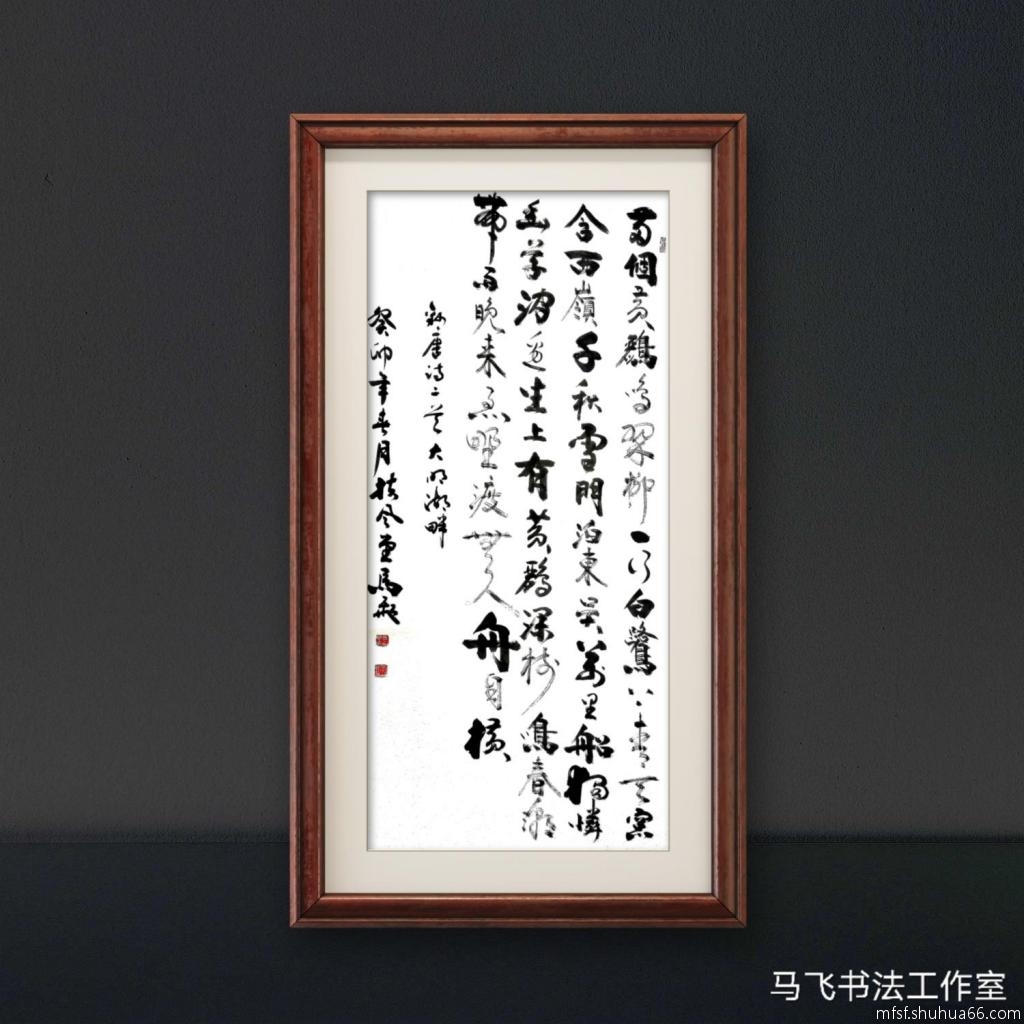 兩個黄鸝鸣翠柳一行白鷺上青天窓
含西嶺千秋雪門泊東吴萬里船獨憐
幽草澗边生上有黄鸝深樹鳴春潮
帶雨晚来急野渡無人舟自橫
錄唐诗二首大明湖畔
癸卯年春月扶风堂馬飛
马飞书法工作室
mfsf.shuhua66.com